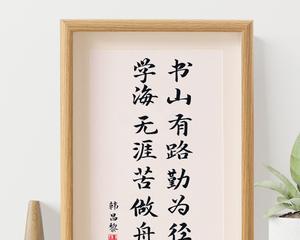 书山有路勤为径
学海无涯苦做舟
韩昌黎